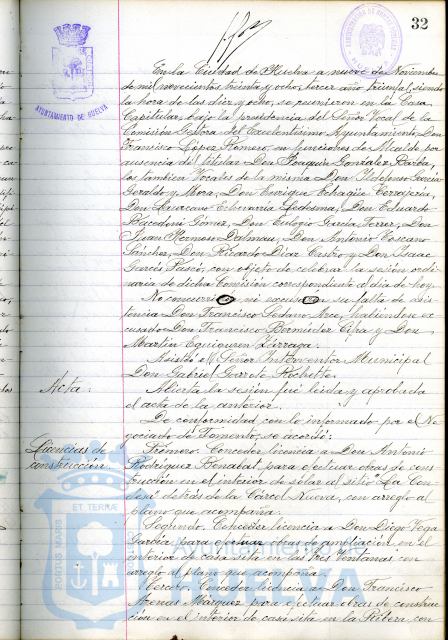 32
AYUNTAMIENTO DE HUELVA
En la Ciudad de Huelva a nueve de Noviembre
de mil novecientos treinta y ocho, tercer año triunfal, siendo
la hora de las diez y ocho, se reunieron en la Casa
Capitular, bajo la presidencia del Señor Vocal de la
Comisión Gestora del Excelentísimo Ayuntamiento, Don
Francisco López Romero, en funciones de Alcalde por
ausencia del titular Don Joaquín González Barba,
los también Vocales de la misma Don Ildefonso García
Geraldo y Mora, Don Enrique Echagüe
Don Laureano Echevarria Ledesma, Don Eduardo
Gómez, Don Eulogio García Ferrer, Don
Juan Dalmau, Don Antonio Toscano
Sánchez, Don Ricardo Díaz Castro y Don Isaac
Garcés con objeto de celebrar la sesión ordi-
naria de dicha Comisión correspondiente al día de hoy.
No concurrió ni excusó su falta de asis-
tencia Don Francisco habiéndose ex-
cusado Don Francisco Bermúdez y Don
Martín
Asistió el Señor Interventor Municipal
Don Gabriel Garrote
Acta.
Abierta la sesión fué leída y aprobada
el acta de la anterior.
De conformidad con lo informado por el Ne-
gociado de Fomento, se acordó:
Licencias de
construcción.
Primero. Conceder licencia a Don Antonio
Rodríguez para efectuar obras de cons-
trucción en el interior de solar al sitio "La Con-
detrás de la Cárcel Nueva, con arreglo al
plano que acompaña.
Segundo. Conceder licencia a Don Diego Vega
García para efectuar obras de ampliación en el
interior de casa sita en las "Tres Ventanas" con
arreglo al plano que acompaña.
Tercero. Conceder licencia a Don Francisco
Arenas Márquez para efectuar obras de construc-
ción en el interior de casa sita en la Ribera, con
PORTUS MARIS ET TERRAE
Ayuntamiento de
HUELVA